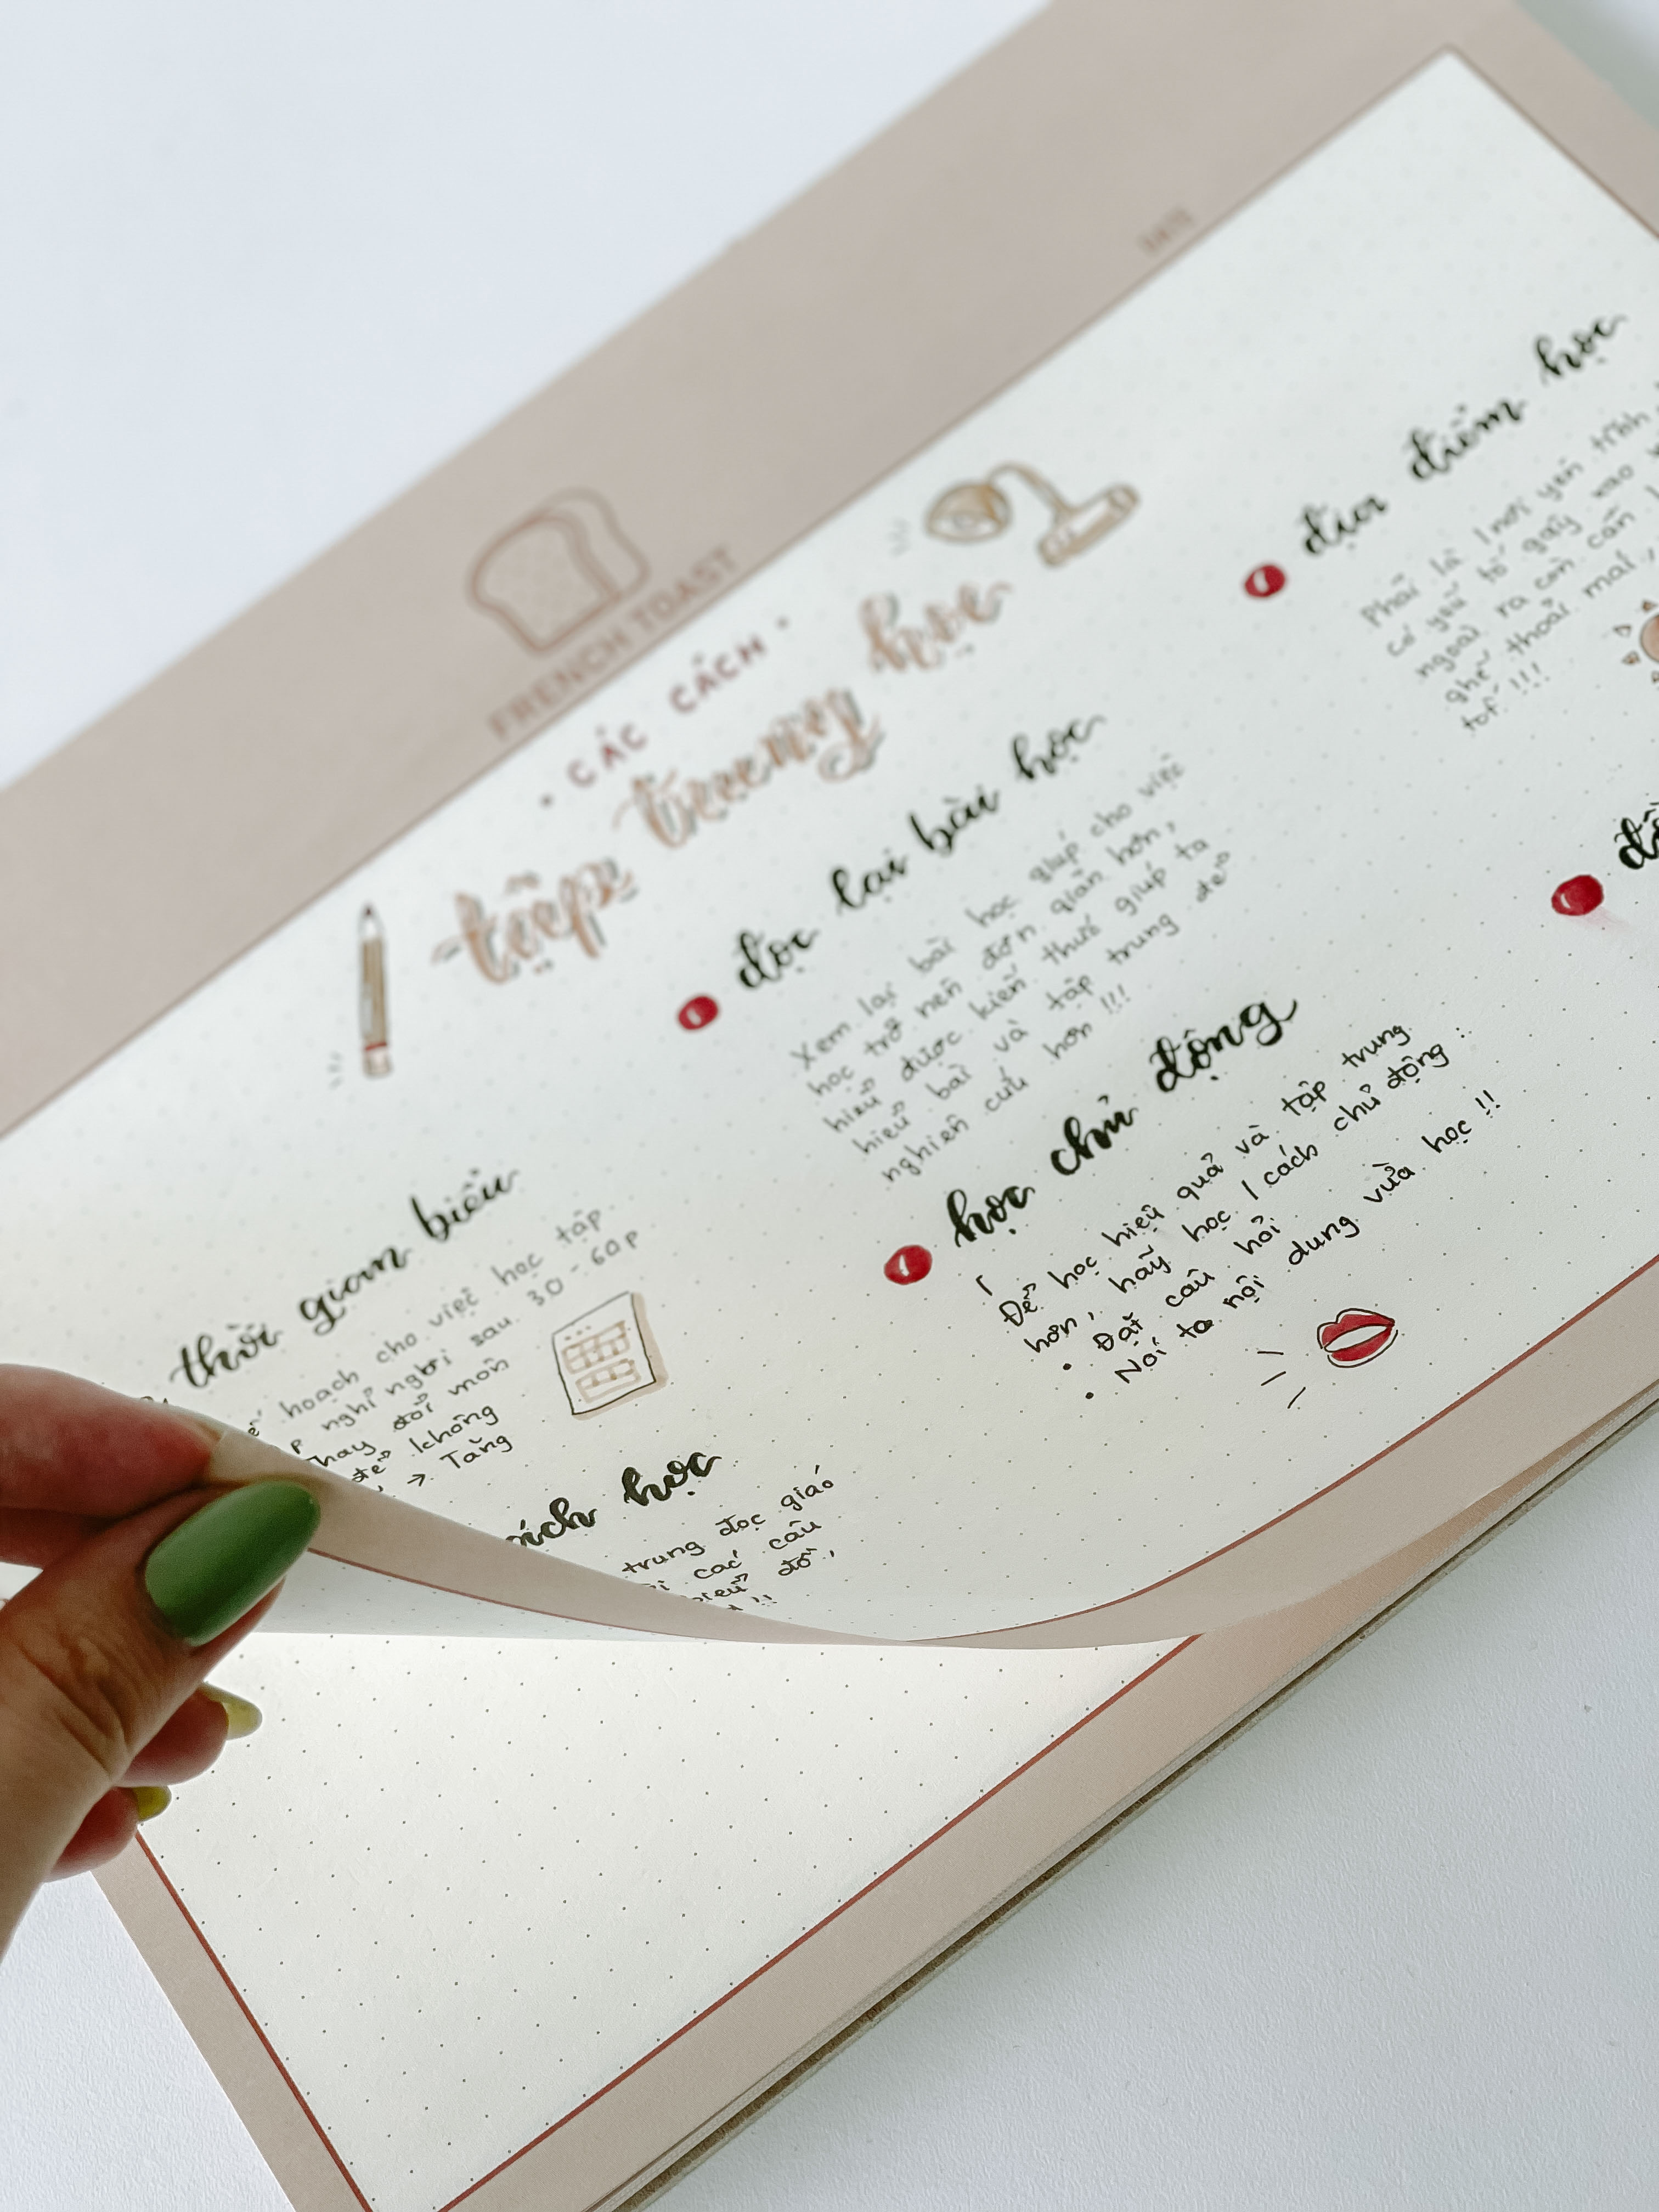 DATE
FRENCH TOAST
• CÁC CÁCH •
tập trung học
thời gian biểu
hoạch cho việc học tập
nghỉ ngơi sau 30 - 60p
thay đổi môn
để không
→ Tăng
học
trung đọc giáo
các câu
hiểu đó,
!!
đọc lại bài học
Xem lại bài học giúp cho việc
học trở nên đơn giản hơn,
hiểu được kiến thức giúp ta
hiểu bài và tập trung để
nghiên cứu hơn !!!
học chủ động
Để học hiệu quả và tập trung
hơn, hãy học 1 cách chủ động :
• Đặt câu hỏi
• Nói to nội dung vừa học !!
địa điểm học
Phải là 1 nơi yên tĩnh
có yếu tố gây xao
ngoài ra còn cần
ghế thoải mái,
tốt !!!